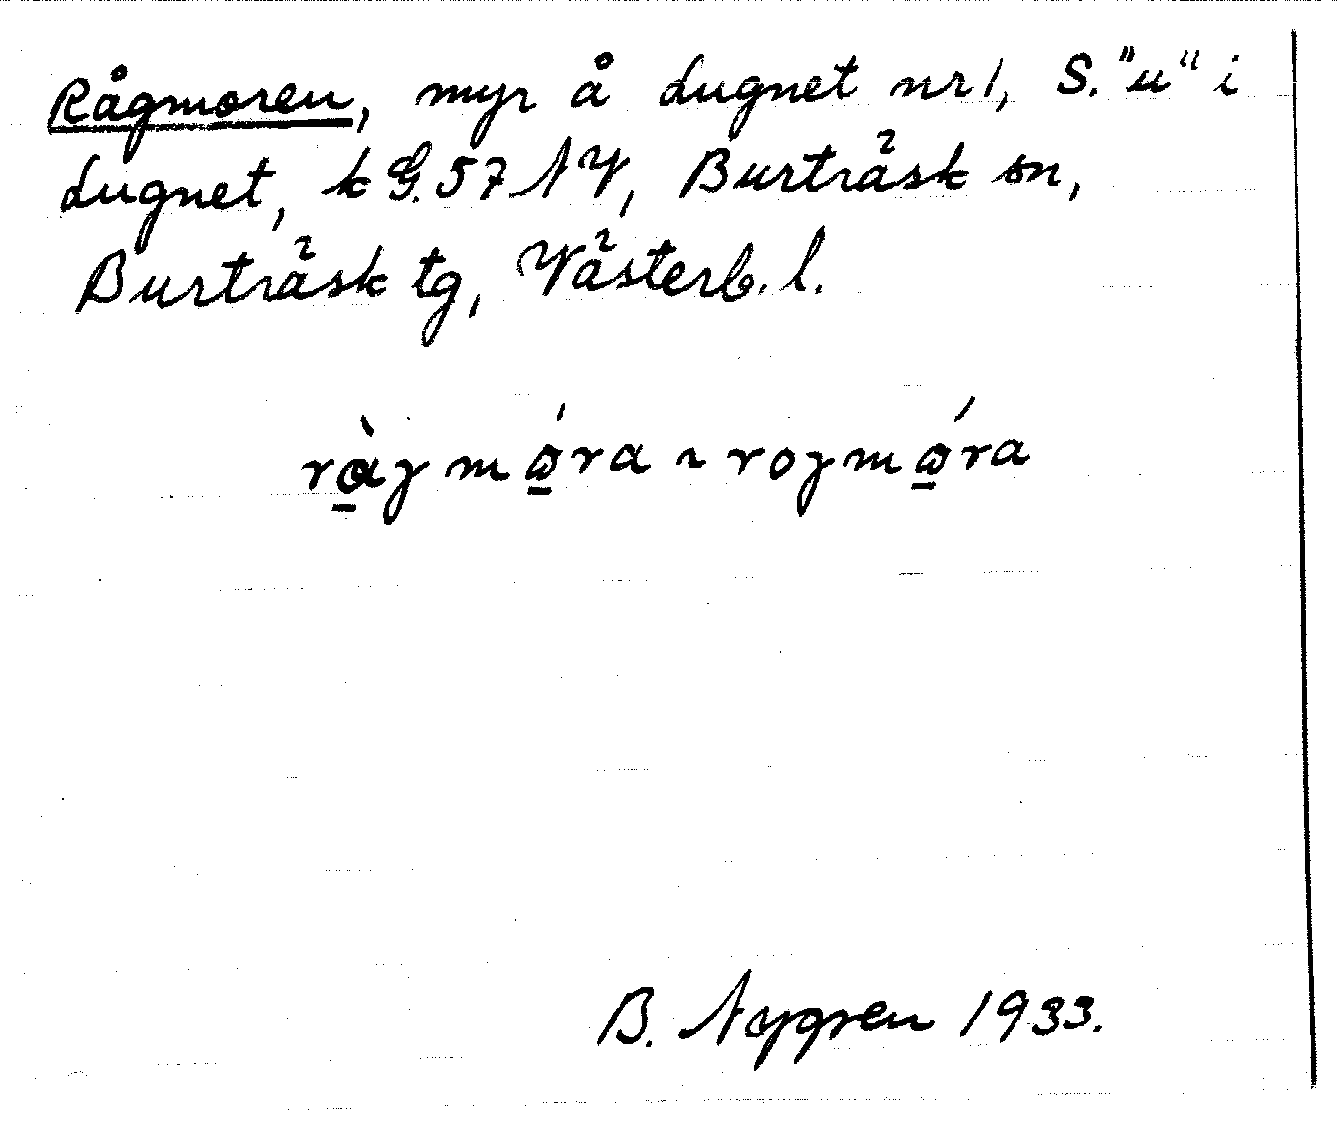 Rågmoren, myr å Lugnet nr 1, S. "u" i
Lugnet, k G. 57 NV, Burträsk sn,
Burträsk tg, Västerb. l.
ràgmóra ~ rogmóra
B. Nygren 1933.